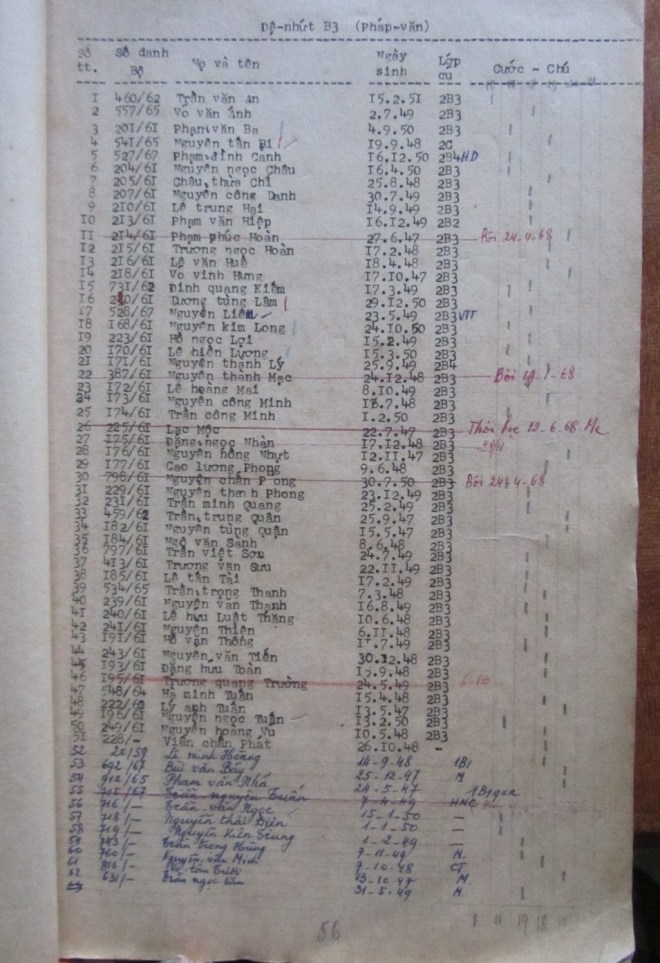 Đệ-nhứt B3 (Pháp-văn)
Số tt. Số danh Bộ Họ và tên Ngày sinh Lớp cũ Cước - Chú
1 460/62 Trần văn An 15.2.51 2B3
2 557/65 Vo văn Ánh 2.7.49 2B3
3 201/61 Phạn văn Ba 4.9.50 2B3
4 541/65 Nguyễn tấn Bi 19.9.48 2C
5 527/67 Phạm đình Canh 16.12.50 2B4 HD
6 204/61 Nguyễn ngọc Châu 16.4.50 2B3
7 205/61 Châu thừa Chí 25.8.48 2B3
8 207/61 Nguyễn công Danh 30.7.49 2B3
9 210/61 Lê trung Hại 14.9.49 2B3
10 213/61 Phạm văn Hiệp 16.12.49 2B2
11 214/61 Phạm phúc Hoàn 27.6.47 2B3 Bôi 24-4-68
12 215/61 Trương ngọc Hoàn 17.2.48 2B3
13 216/61 Lê văn Huê 18.4.48 2B3
14 218/61 Vo vinh Hưng 17.10.47 2B3
15 731/62 Đinh quang Kiếm 17.3.49 2B3
16 Dương tùng Lâm 29.12.50 2B3
17 528/67 Nguyễn Liên 23.5.49 2B3 VTT
18 168/61 Nguyễn kim Long 24.10.50 2B3
19 223/61 Hồ ngọc Lợi 15.2.49 2B3
20 170/61 Lê hiền Lương 15.3.50 2B3
21 171/61 Nguyễn thành Lý 25.9.49 2B4
22 387/61 Nguyễn thành Mạc 24.12.48 2B3 Bôi
23 172/61 Lê hoàng Mai 8.10.49 2B3
24 173/61 Nguyễn công Minh 2B3
25 174/61 Trần công Minh 1.2.50 2B3
26 225/61 Lạc Mộc 22.7.47 2B3 Thôi học 12.6.68
27 175/61 Đặng ngọc Nhàn 17.12.48 2B3
28 176/61 Nguyễn hồng Nhựt 12.11.47 2B3
29 177/61 Cao lương Phong 9.6.48 2B3
30 798/61 Nguyễn chấn P ong 30.7.50 2B3 Bôi 24-4-68
31 229/61 Nguyễn thanh Phong 23.12.49 2B3
32 231/61 Trần minh Quang 25.2.49 2B3
33 459/62 Trần trung Quân 25.9.47 2B3
34 182/61 Nguyễn tùng Quận 15.5.47 2B3
35 184/61 Ngô văn Sanh 8.6.48 2B3
36 797/61 Trần việt Sơn 24.7.49 2B3
37 413/61 Trương văn Sưu 22.11.49 2B3
38 185/61 Lê tấn Tài 17.2.49 2B3
39 534/65 Trần trọng Thanh 7.3.48 2B3
40 239/61 Nguyễn văn Thạnh 16.8.49 2B3
41 240/61 Lê hưu Luật Thăng 10.6.48 2B3
42 241/61 Nguyễn Thiện 6.11.48 2B3
43 191/61 Hồ văn Thông 2B3
44 243/61 Nguyễn văn Tiến 30.12.48 2B3
45 193/61 Đặng hưu Toàn 15.9.48 2B3
46 195/61 Trương quang Trường 24.5.49 2B3
47 548/64 Hà minh Tuấn 15.4.48 2B3
48 222/60 Lý anh Tuấn 2B3
49 196/61 Nguyễn ngọc Tuấn 13.2.50 2B3
50 249/61 Nguyễn hoàng Vu 10.5.48 2B3
51 228/- Viên chấn Phát 26.10.48 -
52 20/59 Lê minh Hoàng 14-9-48 1B1
53 692/67 Bùi văn Bảy 25-12-47 M
54 912/65 Phạm văn Nhã 24-5-47 1B1 qua
55 715/67 Trần nguyên Tuấn 7-4-49 HNC
56 716/- Trần văn Ngọc 15-1-50 —
57 718/- Nguyễn thái Điền 1-1-50 —
58 719/- Nguyễn Kiên Trung 1-2-49 —
59 Trần trọng Hùng 7-11-49 M
60 760/- Nguyễn văn 7-10-48 CT
61 13-10-47 M
62 631/- Trần ngọc 31-5-49 M
56